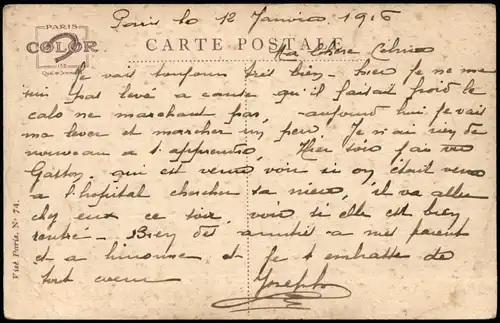 PARIS
COLOR
152
Quai de Jemmapes
Paris le 12 Janvier 1916
CARTE POSTALE
Ma Chère
Je vais toujours très bien - hier je ne me
suis pas levé a cause qu'il faisait froid le
calo ne marchant pas, - aujourd hui je vais
me lever et marcher un peu. Je n'ai rien de
nouveau a t apprendre, Hier soir j'ai vu
Gaston, qui est venu voir si on était venu
a l'hopital chercher sa nièce, il va aller
chez eux ce soir, voir si elle est bien
rentré - Bien des amitiés a mes parent
et a et je t embrasse de
tout coeur
Joseph
Visé Paris. Nº 74.